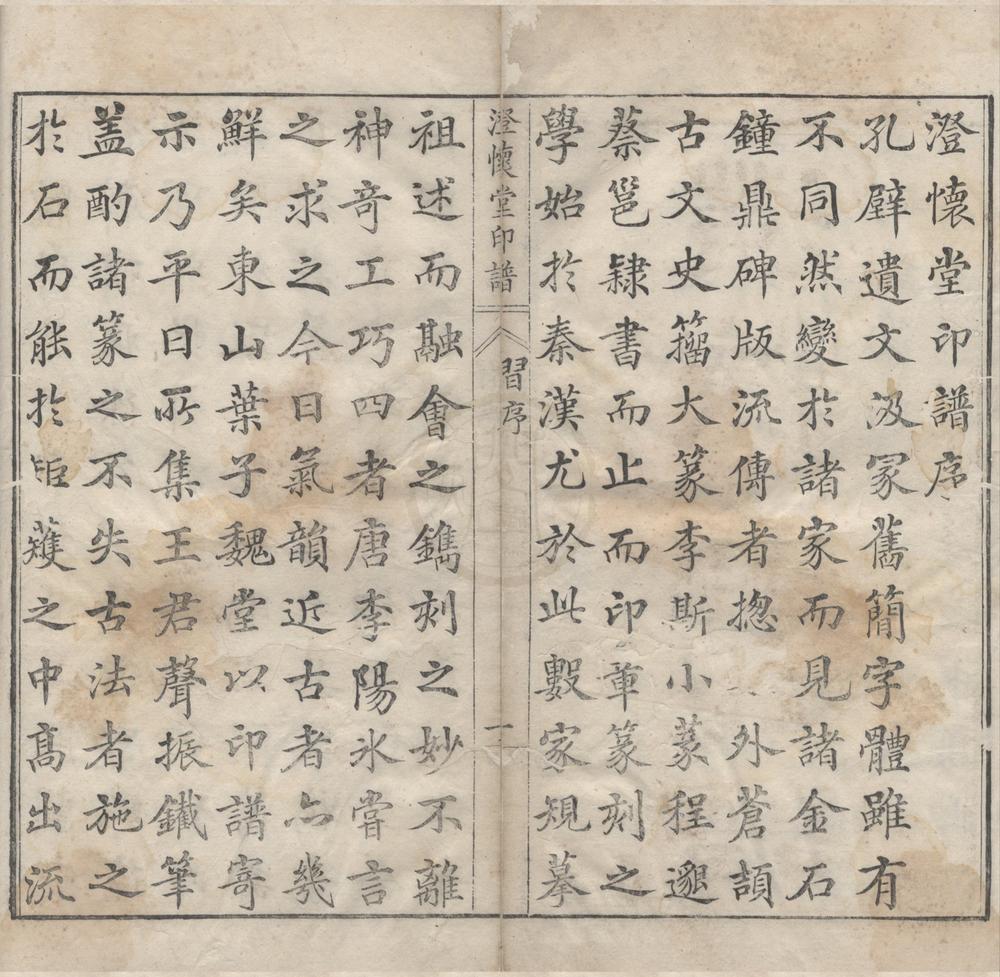 澄懷堂印譜序
孔壁遺文汲冢舊簡字體雖有
不同然變於諸家而見諸金石
鐘鼎碑版流傳者揔外蒼頡
古文史籀大篆李斯小篆程邈
蔡邕隸書而止而印章篆刻之
學始於秦漢尤於此數家規摹
澄懷堂印譜
習序
一
祖述而融會之鐫刻之妙不離
神奇工巧四者唐李陽氷嘗言
之求之今日氣韻近古者亦幾
鮮矣東山葉子魏堂以印譜寄
示乃平日所集王君聲振鐵筆
盖酌諸篆之不失古法者施之
於石而能於矩矱之中高出流